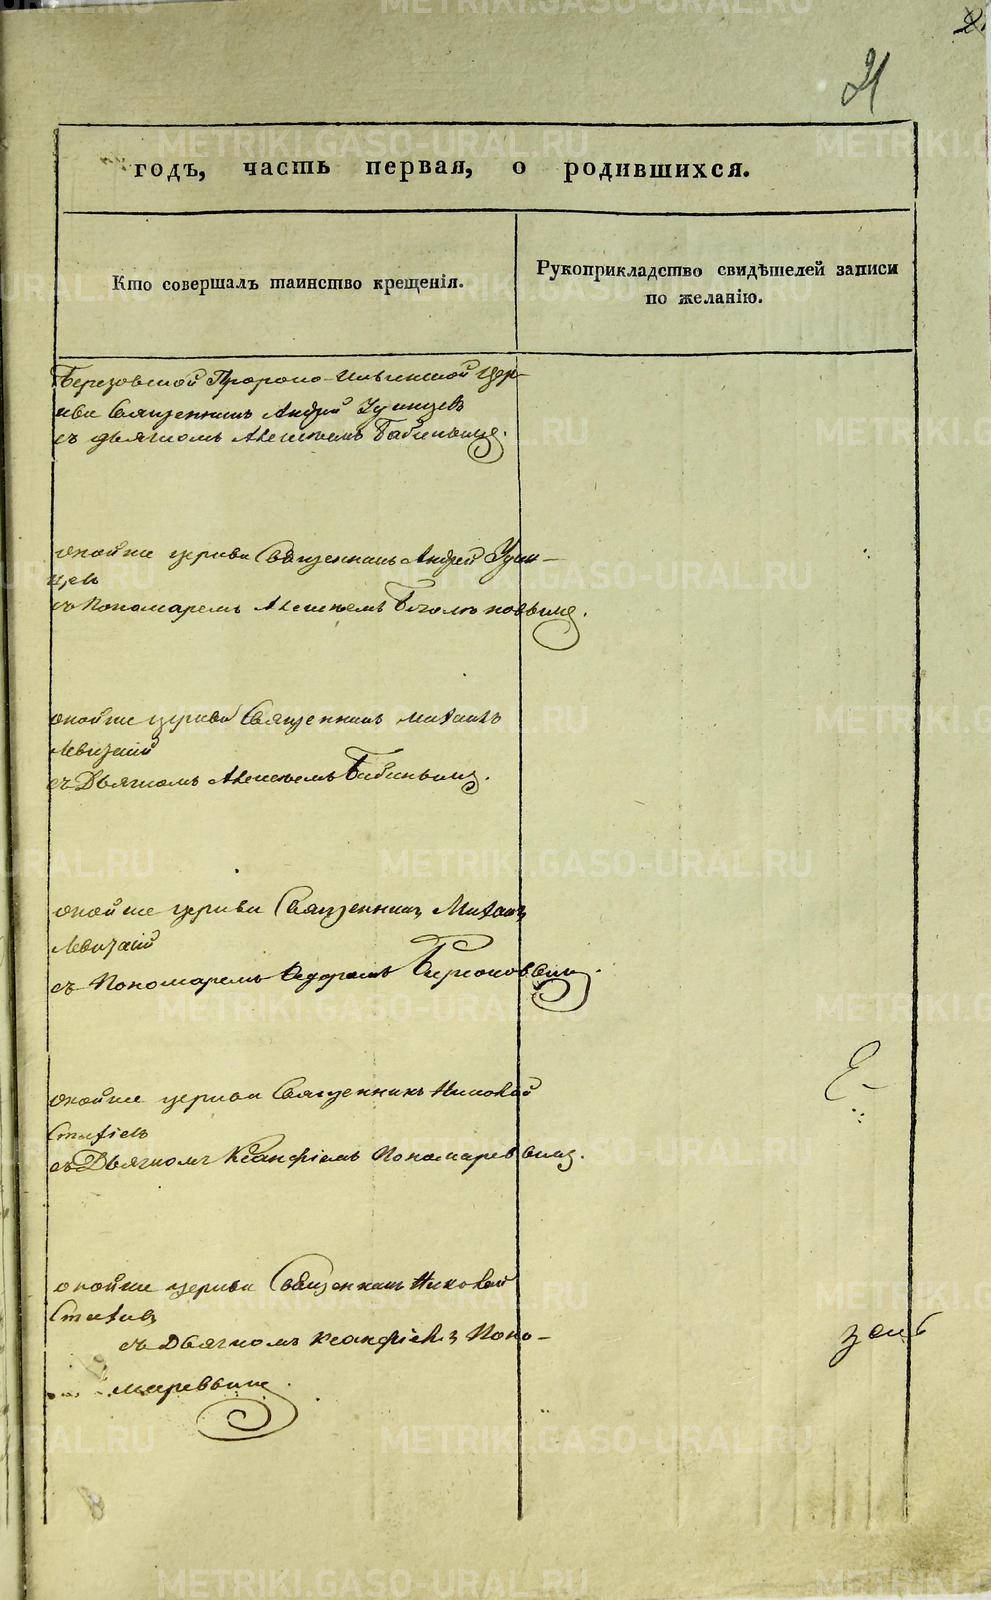 21
годъ, часть первая, о родившихся.
Кто совершалъ таинство крещенія.
Рукоприкладство свидѣтелей записи
по желанію.
Березовской Пророко-Ильинской Цер-
кви Священникъ Андрей Удинцевъ
съ дьячкомъ Алексѣемъ Бабинымъ.
оной же церкви Священникъ Андрей Удин-
цевъ
съ Пономаремъ Алексѣемъ
оной же церкви Священникъ Михаилъ
Левицкій
съ Дьячкомъ Алексѣемъ Бабинымъ.
оной же церкви Священникъ Михаилъ
Левицкій
съ Пономаремъ Ѳедоромъ Бирюковымъ.
оной же церкви Священникъ Николай
съ Дьячкомъ Ксанфіемъ Пономаревымъ.
оной же церкви Священникъ Николай
съ Дьячкомъ Ксанфіемъ Поно-
маревымъ.
METRIKI.GASO-URAL.RU